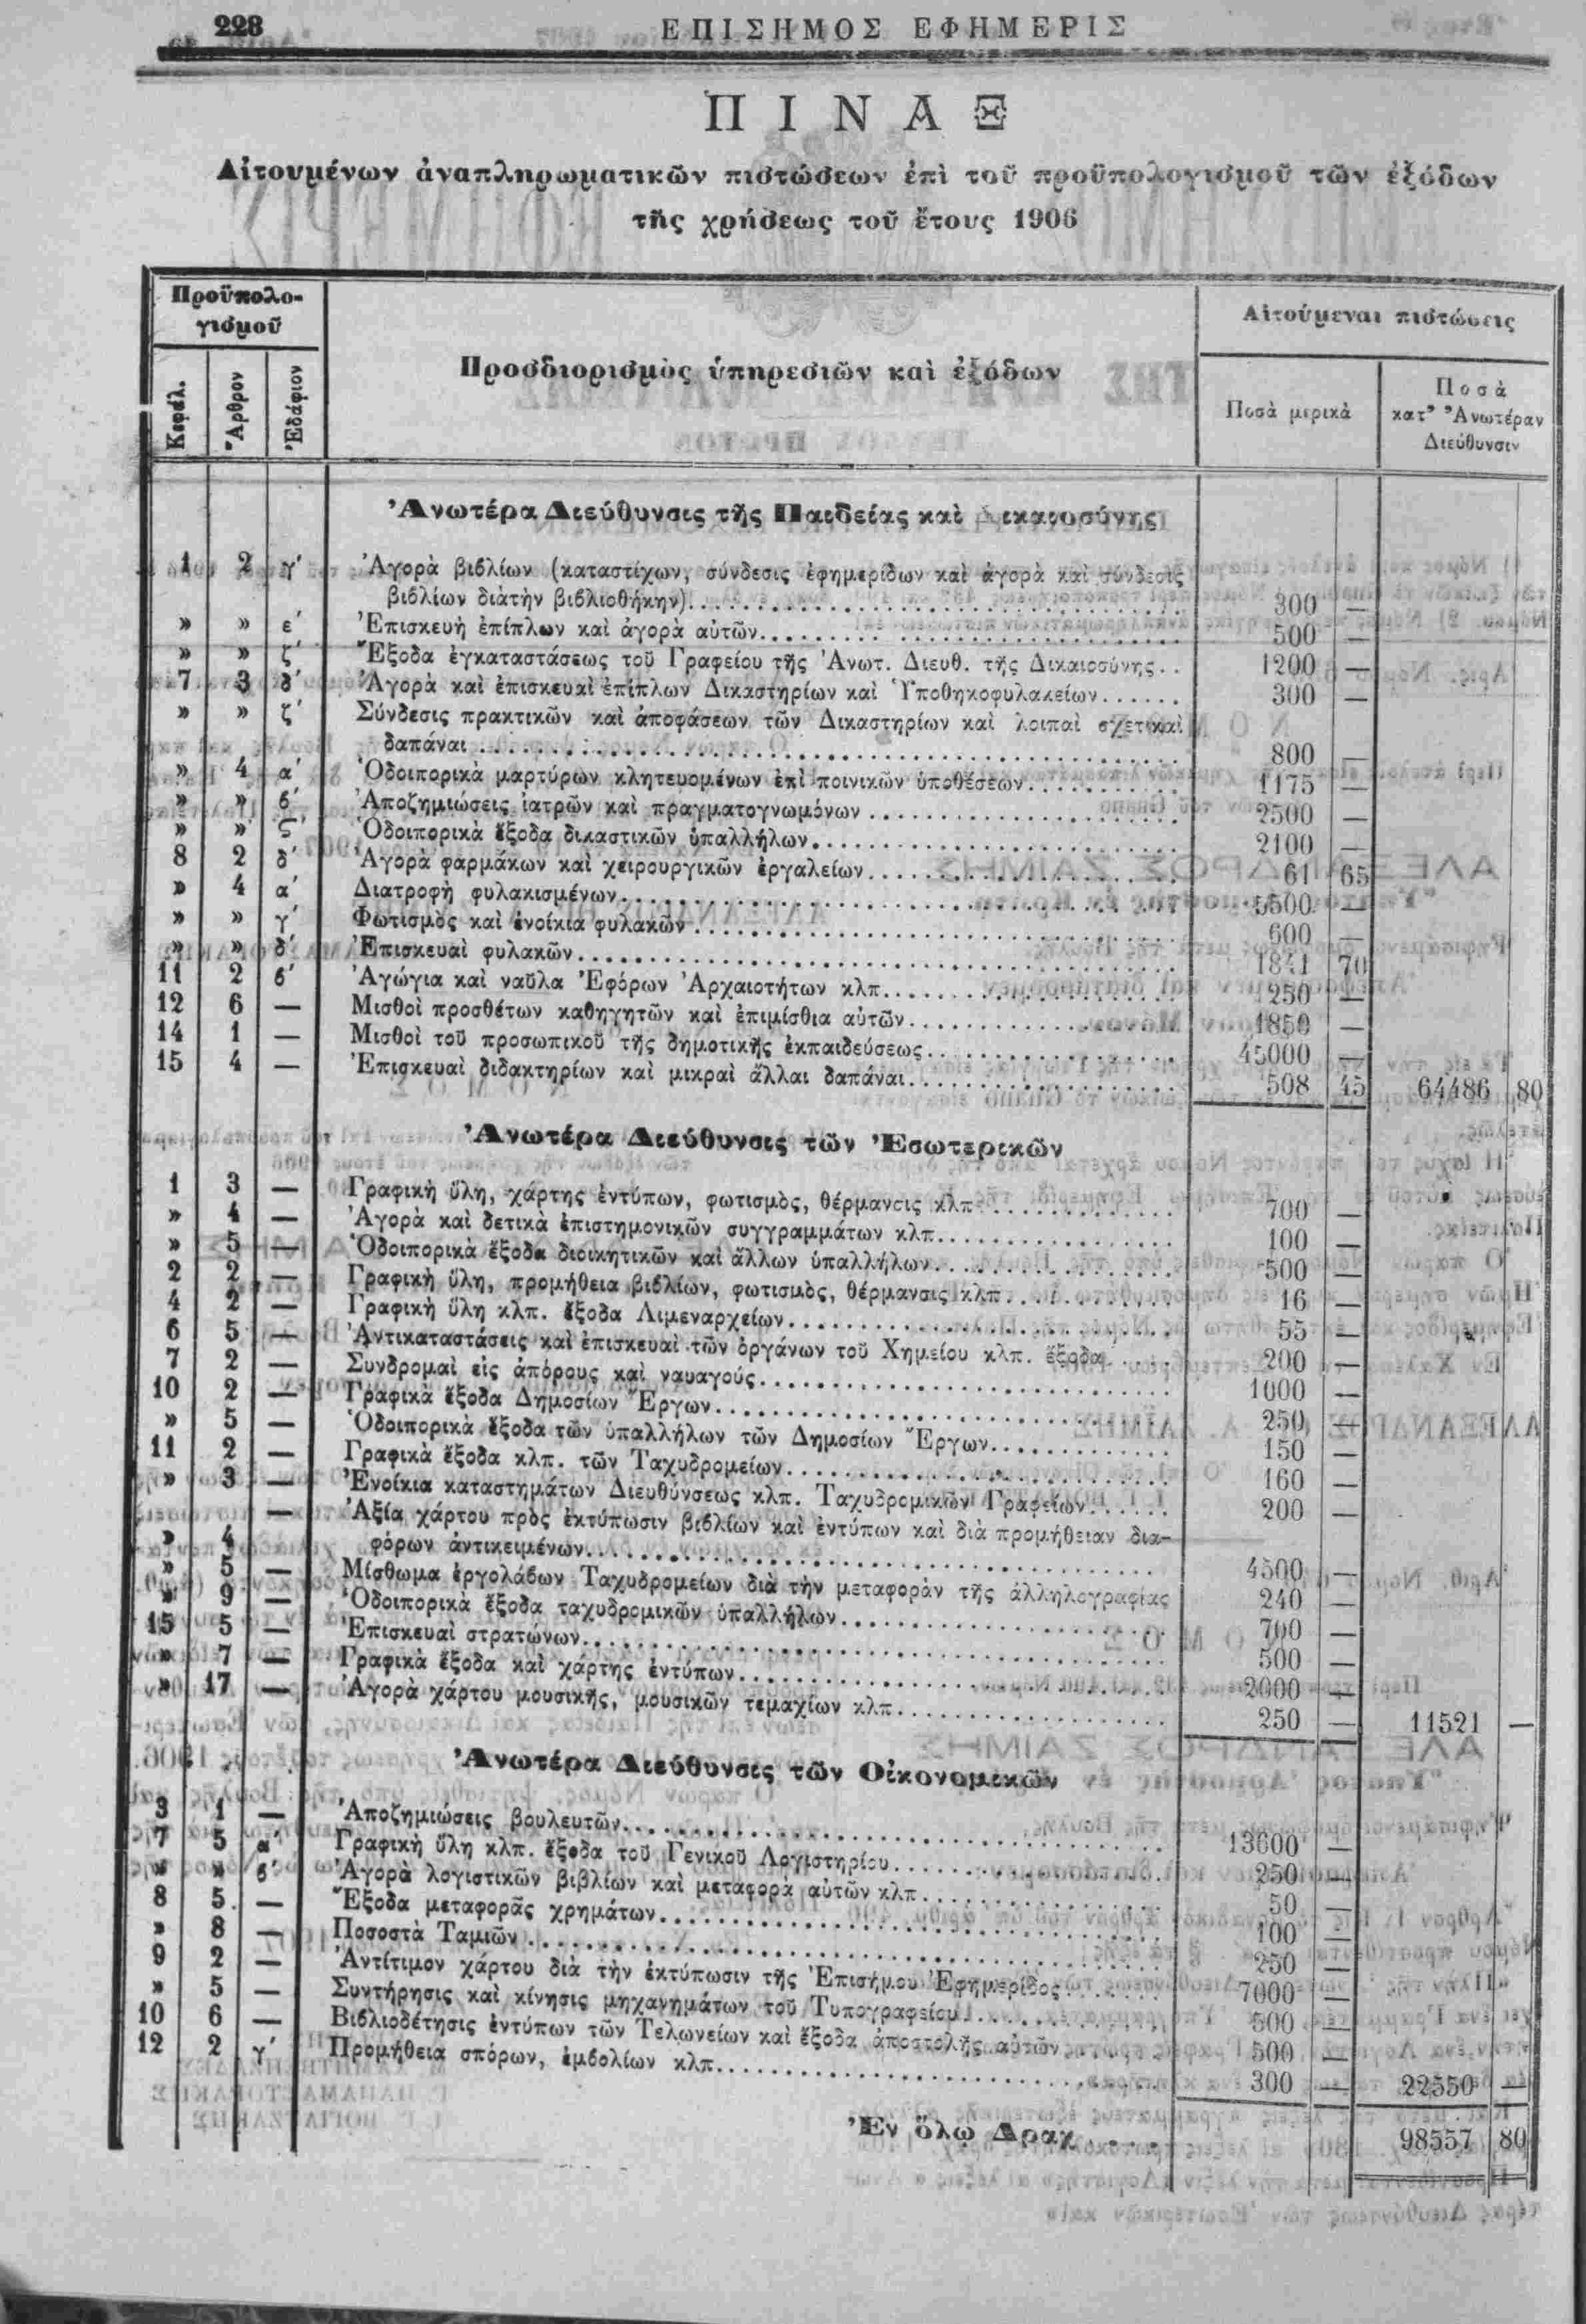 228
ΕΠΙΣΗΜΟΣ ΕΦΗΜΕΡΙΣ
ΠΙΝΑΞ
Αἰτουμένων ἀναπληρωματικῶν πιστώσεων ἐπὶ τοῦ προϋπολογισμοῦ τῶν ἐξόδων
τῆς χρήσεως τοῦ ἔτους 1906
Προϋπολο-
γισμοῦ
Κεφάλ. Ἄρθρον Ἐδάφιον
Προσδιορισμὸς ὑπηρεσιῶν καὶ ἐξόδων
Αἰτούμεναι πιστώσεις
Ποσὰ μερικὰ
Ποσὰ
κατ' Ἀνωτέραν
Διεύθυνσιν
Ἀνωτέρα Διεύθυνσις τῆς Παιδείας καὶ Δικαιοσύνης
1 2 γ′ Ἀγορὰ βιβλίων (καταστίχων, σύνδεσις ἐφημερίδων καὶ ἀγορὰ καὶ σύνδεσις
βιβλίων διὰτὴν βιβλιοθήκην) 300 —
» » ε′ Ἐπισκευὴ ἐπίπλων καὶ ἀγορὰ αὐτῶν 500 —
» » ζ′ Ἔξοδα ἐγκαταστάσεως τοῦ Γραφείου τῆς Ἀνωτ. Διευθ. τῆς Δικαιοσύνης 1200 —
7 3 δ′ Ἀγορὰ καὶ ἐπισκευαὶ ἐπίπλων Δικαστηρίων καὶ Ὑποθηκοφυλακείων 300 —
» » ζ′ Σύνδεσις πρακτικῶν καὶ ἀποφάσεων τῶν Δικαστηρίων καὶ λοιπαὶ σχετικαὶ
δαπάναι 800 —
» 4 α′ Ὁδοιπορικὰ μαρτύρων κλητευομένων ἐπὶ ποινικῶν ὑποθέσεων 1175 —
» » β′ Ἀποζημιώσεις ἰατρῶν καὶ πραγματογνωμόνων 2500 —
» » ς′ Ὁδοιπορικὰ ἔξοδα δικαστικῶν ὑπαλλήλων 2100 —
8 2 δ′ Ἀγορὰ φαρμάκων καὶ χειρουργικῶν ἐργαλείων 61 65
» 4 α′ Διατροφὴ φυλακισμένων 5500 —
» » γ′ Φωτισμὸς καὶ ἐνοίκια φυλακῶν 600 —
» » δ′ Ἐπισκευαὶ φυλακῶν 1841 70
11 2 β′ Ἀγώγια καὶ ναῦλα Ἐφόρων Ἀρχαιοτήτων κλπ. 250 —
12 6 — Μισθοὶ προσθέτων καθηγητῶν καὶ ἐπιμίσθια αὐτῶν 1850 —
14 1 — Μισθοὶ τοῦ προσωπικοῦ τῆς δημοτικῆς ἐκπαιδεύσεως 45000 —
15 4 — Ἐπισκευαὶ διδακτηρίων καὶ μικραὶ ἄλλαι δαπάναι 508 45 64486 80
Ἀνωτέρα Διεύθυνσις τῶν Ἐσωτερικῶν
1 3 — Γραφικὴ ὕλη, χάρτης ἐντύπων, φωτισμὸς, θέρμανσις κλπ 700 —
» 4 — Ἀγορὰ καὶ δετικὰ ἐπιστημονικῶν συγγραμμάτων κλπ. 100 —
» 5 — Ὁδοιπορικὰ ἔξοδα διοικητικῶν καὶ ἄλλων ὑπαλλήλων 500 —
2 2 — Γραφικὴ ὕλη, προμήθεια βιβλίων, φωτισμὸς, θέρμανσις κλπ 16 —
4 2 — Γραφικὴ ὕλη κλπ. ἔξοδα Λιμεναρχείων 55 —
6 5 — Ἀντικαταστάσεις καὶ ἐπισκευαὶ τῶν ὀργάνων τοῦ Χημείου κλπ. ἔξοδα 200 —
7 2 — Συνδρομαὶ εἰς ἀπόρους καὶ ναυαγούς 1000 —
10 2 — Γραφικὰ ἔξοδα Δημοσίων Ἔργων 250 —
» 5 — Ὁδοιπορικὰ ἔξοδα τῶν ὑπαλλήλων τῶν Δημοσίων Ἔργων 150 —
11 2 — Γραφικὰ ἔξοδα κλπ. τῶν Ταχυδρομείων 160 —
» 3 — Ἐνοίκια καταστημάτων Διευθύνσεως κλπ. Ταχυδρομικῶν Γραφείων 200 —
» 4 — Ἀξία χάρτου πρὸς ἐκτύπωσιν βιβλίων καὶ ἐντύπων καὶ διὰ προμήθειαν δια-
φόρων ἀντικειμένων 4500 —
» 5 — Μίσθωμα ἐργολάβων Ταχυδρομείων διὰ τὴν μεταφορὰν τῆς ἀλληλογραφίας 240 —
» 9 — Ὁδοιπορικὰ ἔξοδα ταχυδρομικῶν ὑπαλλήλων 700 —
15 5 — Ἐπισκευαὶ στρατώνων 500 —
» 7 — Γραφικὰ ἔξοδα καὶ χάρτης ἐντύπων 2000 —
» 17 — Ἀγορὰ χάρτου μουσικῆς, μουσικῶν τεμαχίων κλπ 250 — 11521 —
Ἀνωτέρα Διεύθυνσις τῶν Οἰκονομικῶν
3 1 — Ἀποζημιώσεις βουλευτῶν 13600 —
7 5 α′ Γραφικὴ ὕλη κλπ. ἔξοδα τοῦ Γενικοῦ Λογιστηρίου 250 —
» » β′ Ἀγορὰ λογιστικῶν βιβλίων καὶ μεταφορὰ αὐτῶν κλπ 50 —
8 5 — Ἔξοδα μεταφορᾶς χρημάτων 100 —
» 8 — Ποσοστὰ Ταμιῶν 250 —
9 2 — Ἀντίτιμον χάρτου διὰ τὴν ἐκτύπωσιν τῆς Ἐπισήμου Ἐφημερίδος 7000 —
» 5 — Συντήρησις καὶ κίνησις μηχανημάτων τοῦ Τυπογραφείου 500 —
10 6 — Βιβλιοδέτησις ἐντύπων τῶν Τελωνείων καὶ ἔξοδα ἀποστολῆς αὐτῶν 500 —
12 2 γ′ Προμήθεια σπόρων, ἐμβολίων κλπ 300 — 22550 —
Ἐν ὅλῳ Δραχ. 98557 80